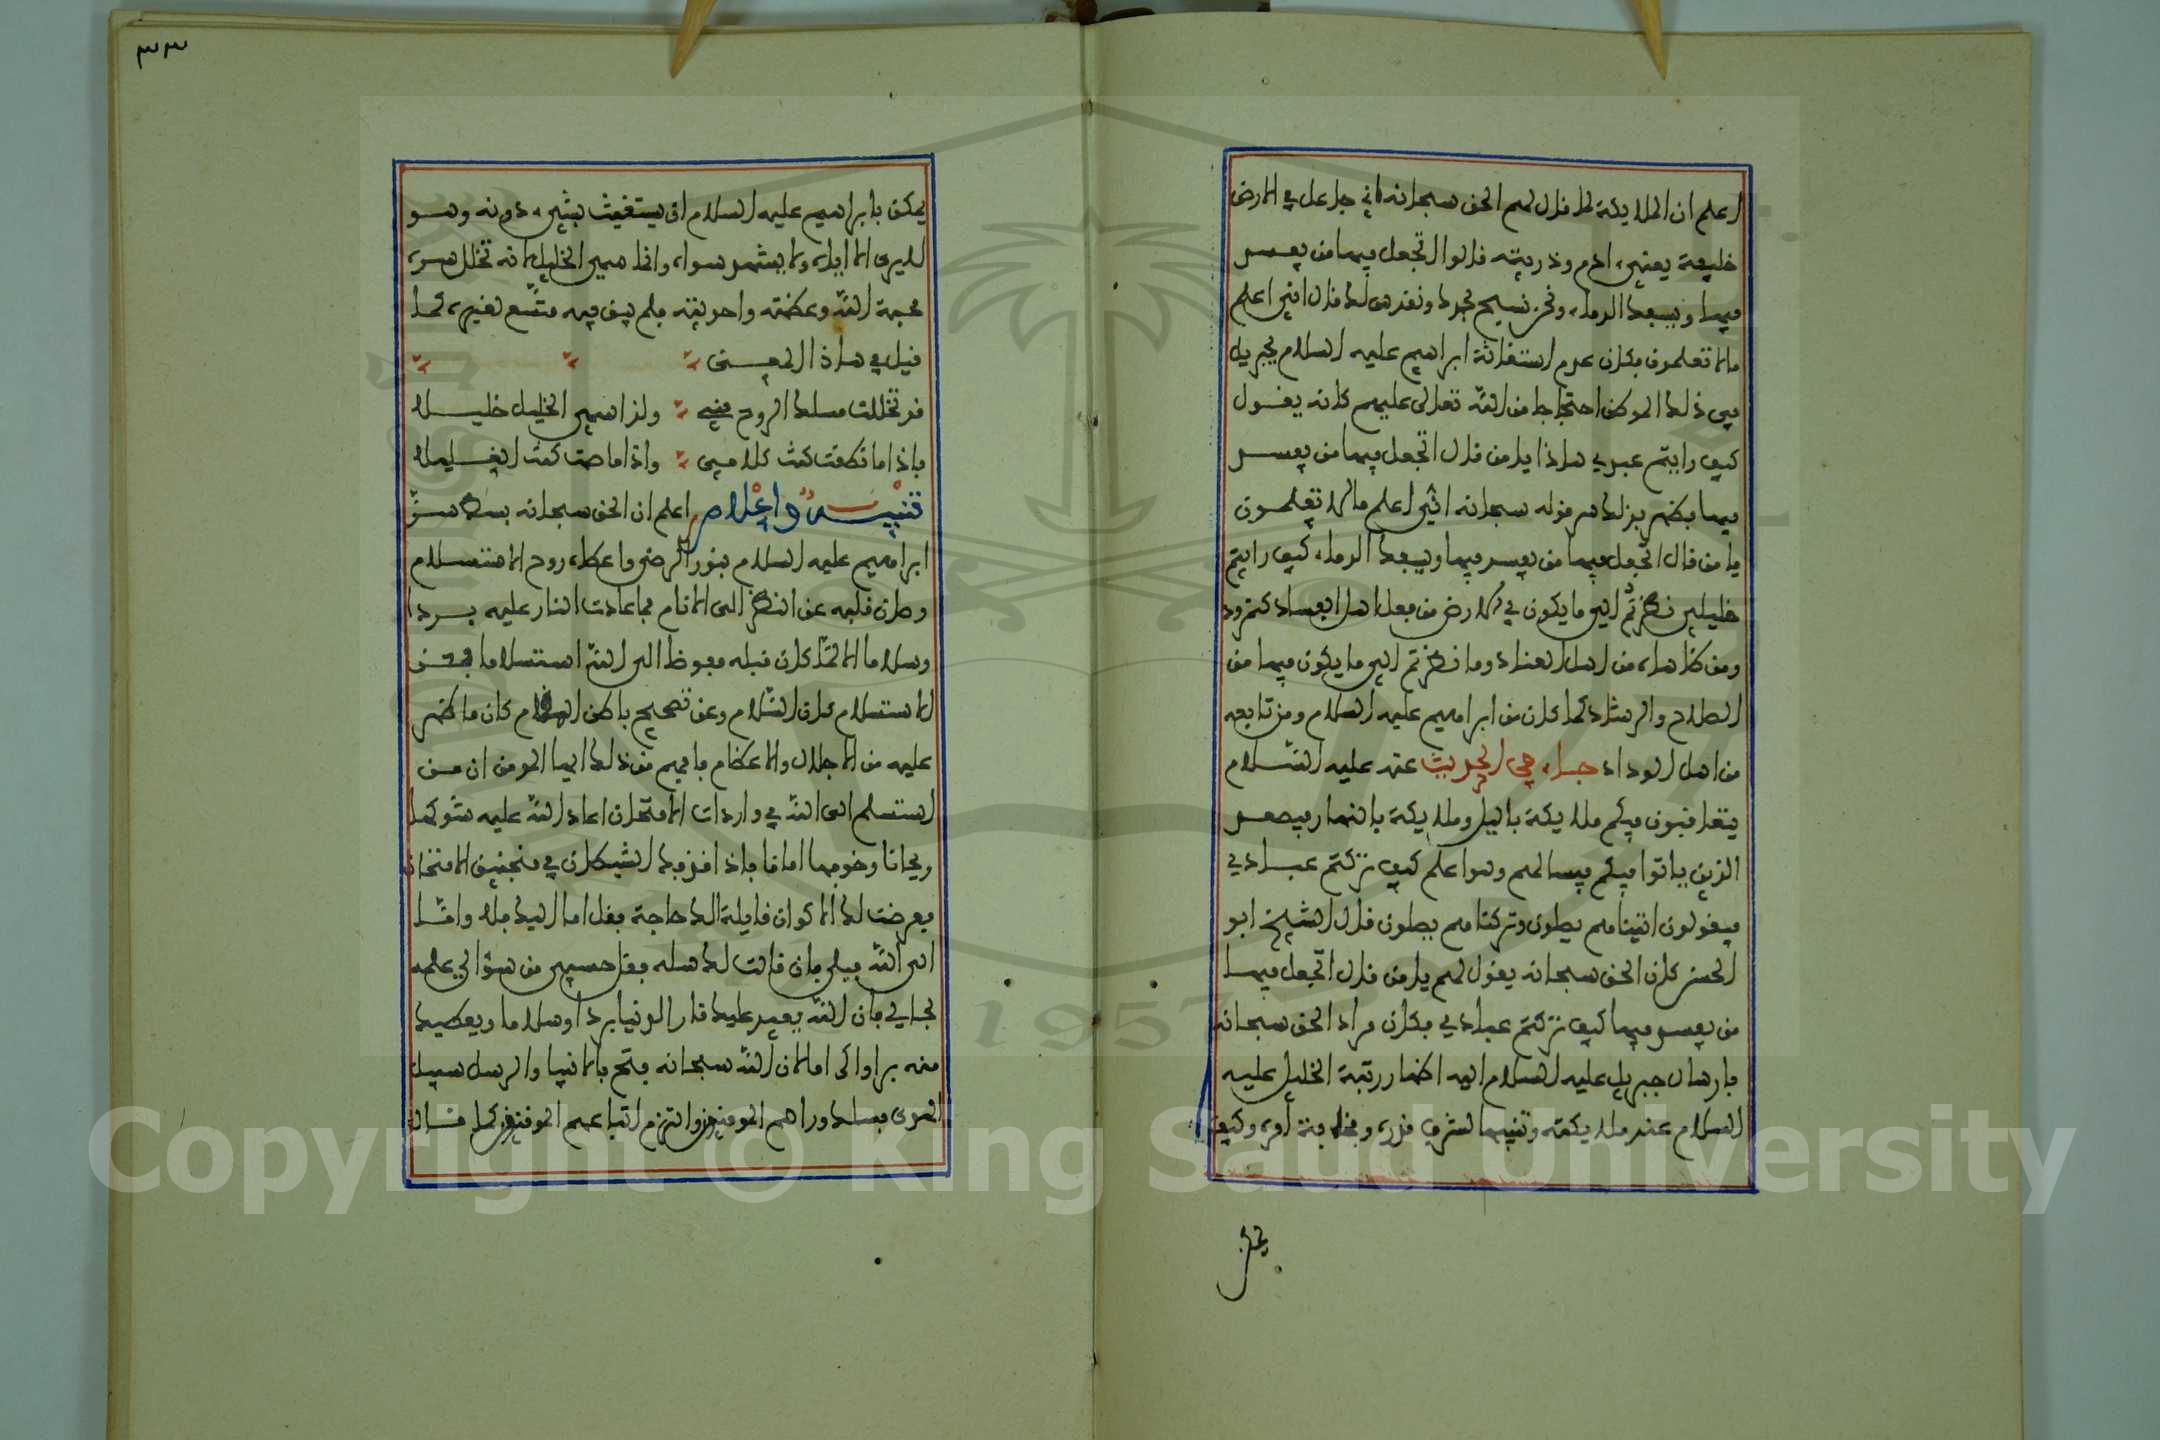 اعلم ان الملايكة لما قال لهم الحق سبحانه اني جاعل في الارض
خليفة يعني ادم وذريته قالوا اتجعل فيها من يفسد
فيها ويسفك الدماء ونحن نسبح بحمدك ونقدس لك قال اني اعلم
ما لا تعلمون فكان عدم استغاثة ابراهيم عليه السلام بجبريل
في ذلك الموطن احتجاجا من الله تعالى عليهم كانه يقول
كيف رايتم عبدي هاذا يا من قال اتجعل فيها من يفسد
فيها فظهر بذلك سر قوله سبحانه اني اعلم ما لا تعلمون
يا من قال اتجعل فيها من يفسد فيها ويسفك الدماء كيف رايتم
خليلي نظرتم الى ما يكون في الارض من فعل اهل الفساد كنمرود
ومن ضاهاه من اهل العناد وما نظرتم الى ما يكون فيها من
الصلاح والرشاد كما كان من ابراهيم عليه السلام ومن تابعه
من اهل الوداد جاء في الحديث عنه عليه السلام
يتعاقبون فيكم ملايكة باليل وملايكة بالنهار فيصعد
الذين باتوا فيكم فيسالهم وهو اعلم كيف تركتم عبادي
فيقولون اتيناهم يصلون وتركناهم يصلون قال الشيخ ابو
الحسن كان الحق سبحانه يقول لهم يا من قال اتجعل فيها
من يفسد فيها كيف تركتم عبادي فكان مراد الحق سبحانه
بارسال جبريل عليه السلام اليه اظهار رتبة الخليل عليه
السلام عند ملايكته وتنبيها لشرف قدره وفخامة امره وكيف
يمكن
٣٣
يمكن بابراهيم عليه السلام ان يستغيث بشيء دونه وهو
لا يرى الا اياه ولا يشهد سواه وانما سمي الخليل لانه تخلل سره
محبة الله وعظمته واحديته فلم يبق فيه متسع لغيره كما
قيل في هاذا المعنى
قد تخللت مسلك الروح مني ولذا سمي الخليل خليلا
فاذا ما نطقت كنت كلامي واذا ما صمت كنت الغليلا
تنبيه واعلام اعلم ان الحق سبحانه بسط سر
ابراهيم عليه السلام بنور الرضى واعطاه روح الاستسلام
وصان قلبه عن النظر الى الانام فما عادت النار عليه بردا
وسلاما الا لما كان قلبه مفوضا الى الله استسلاما فعن
الاستسلام كان السلام وعن تصحيح باطن المقام كان ما ظهر
عليه من الاجلال والاعظام فافهم من ذلك ايها المومن ان من
استسلم الى الله في واردات الامتحان اعاد الله عليه شوكها
ريحانا وخوفها امانا فاذا قذفك الشيطان في منجنيق الامتحان
فعرضت لك الاكوان قايلة الك حاجة فقل اما اليك فلا واما
الى الله فبلى فان قالت لك سله فقل حسبي من سؤالي علمه
بحالي فان الله يعيد عليك نار الدنيا بردا وسلاما ويعطيك
منه برا واكراما لان الله سبحانه فتح بالانبيا والرسل سبيل
الهدى فسلك وراهم المومنون والتزم اتباعهم الموقنون كما قال